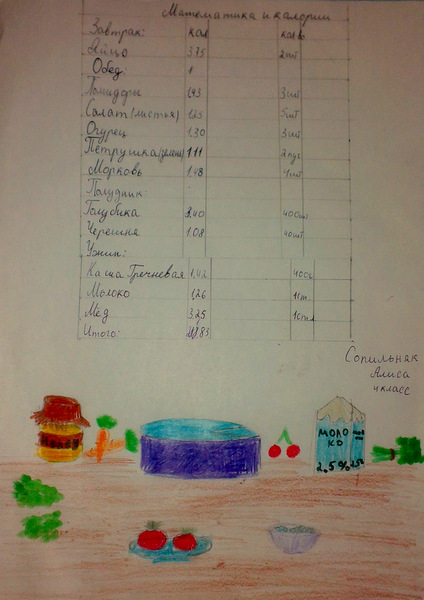 Математика и калории
Завтрак: кал кол во
Яйцо 3.75 2шт
Обед:
Помидоры 1,93 3шт
Салат (листья) 1,25 5шт
Огурец 1.30 3шт
Петрушка (зелень) 1.11 2 пуч
Морковь 1,48 4шт
Полудник
Голубика 2,40 400шт
Черешня 1.08 40шт
Ужин:
Каша Гречневая 1,42 400г
Молоко 1,26 1ст.
Мед 3.25 1ст.л
Итого:
Сопильняк
Алиса
4 класс
HONEY
МОЛО
КО
2,5%